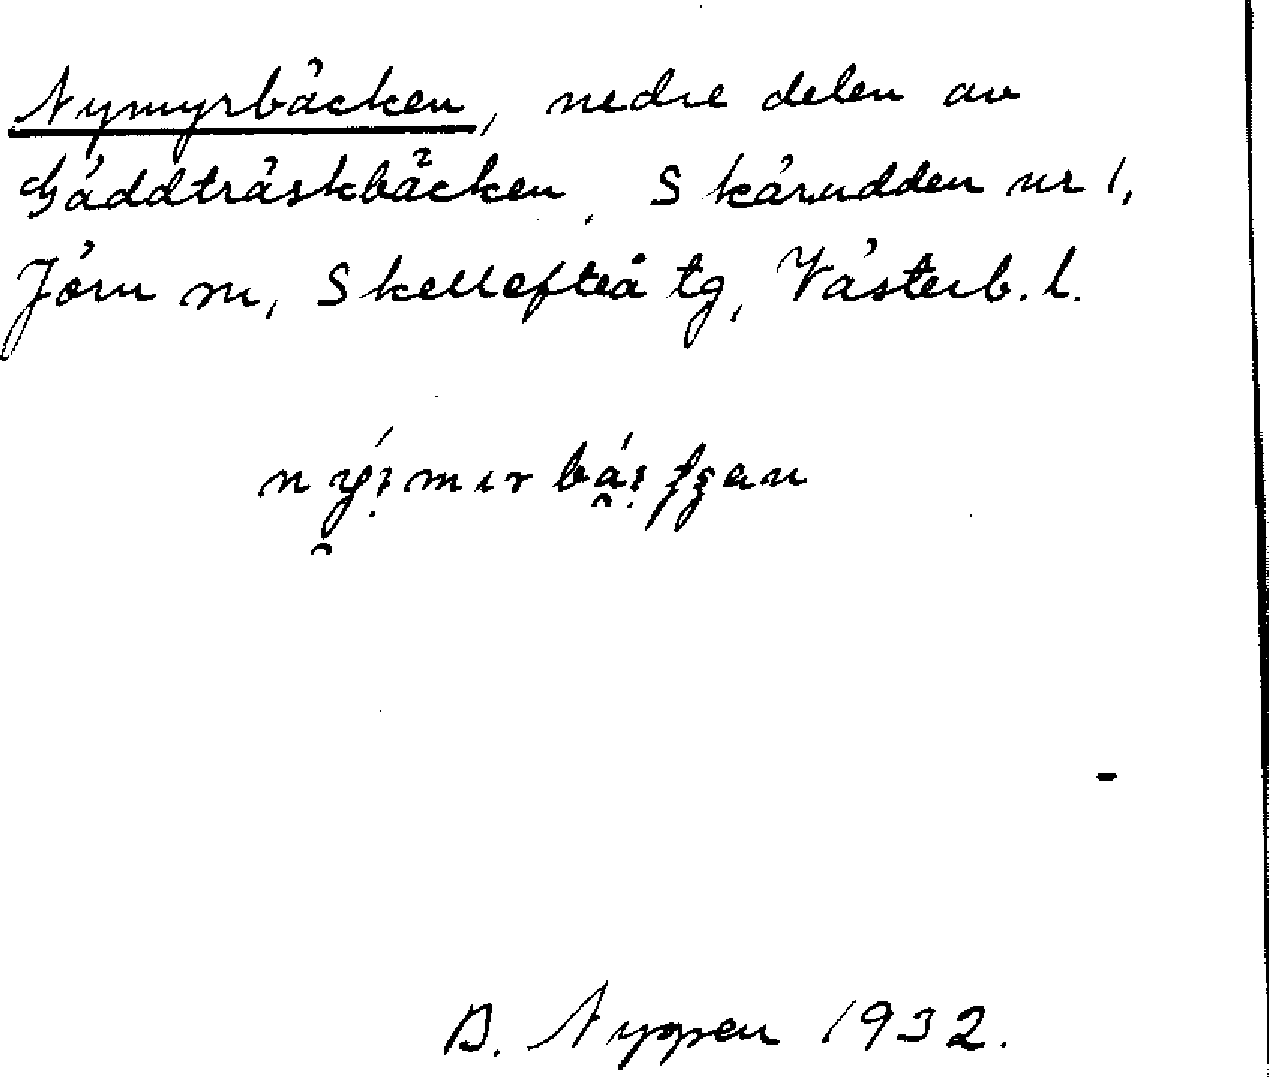 Nymyrbäcken, nedre delen av
Gäddträskbäcken, Skärudden nr 1,
Jörn sn, Skellefteå tg, Västerb. l.
B. Nygren 1932.